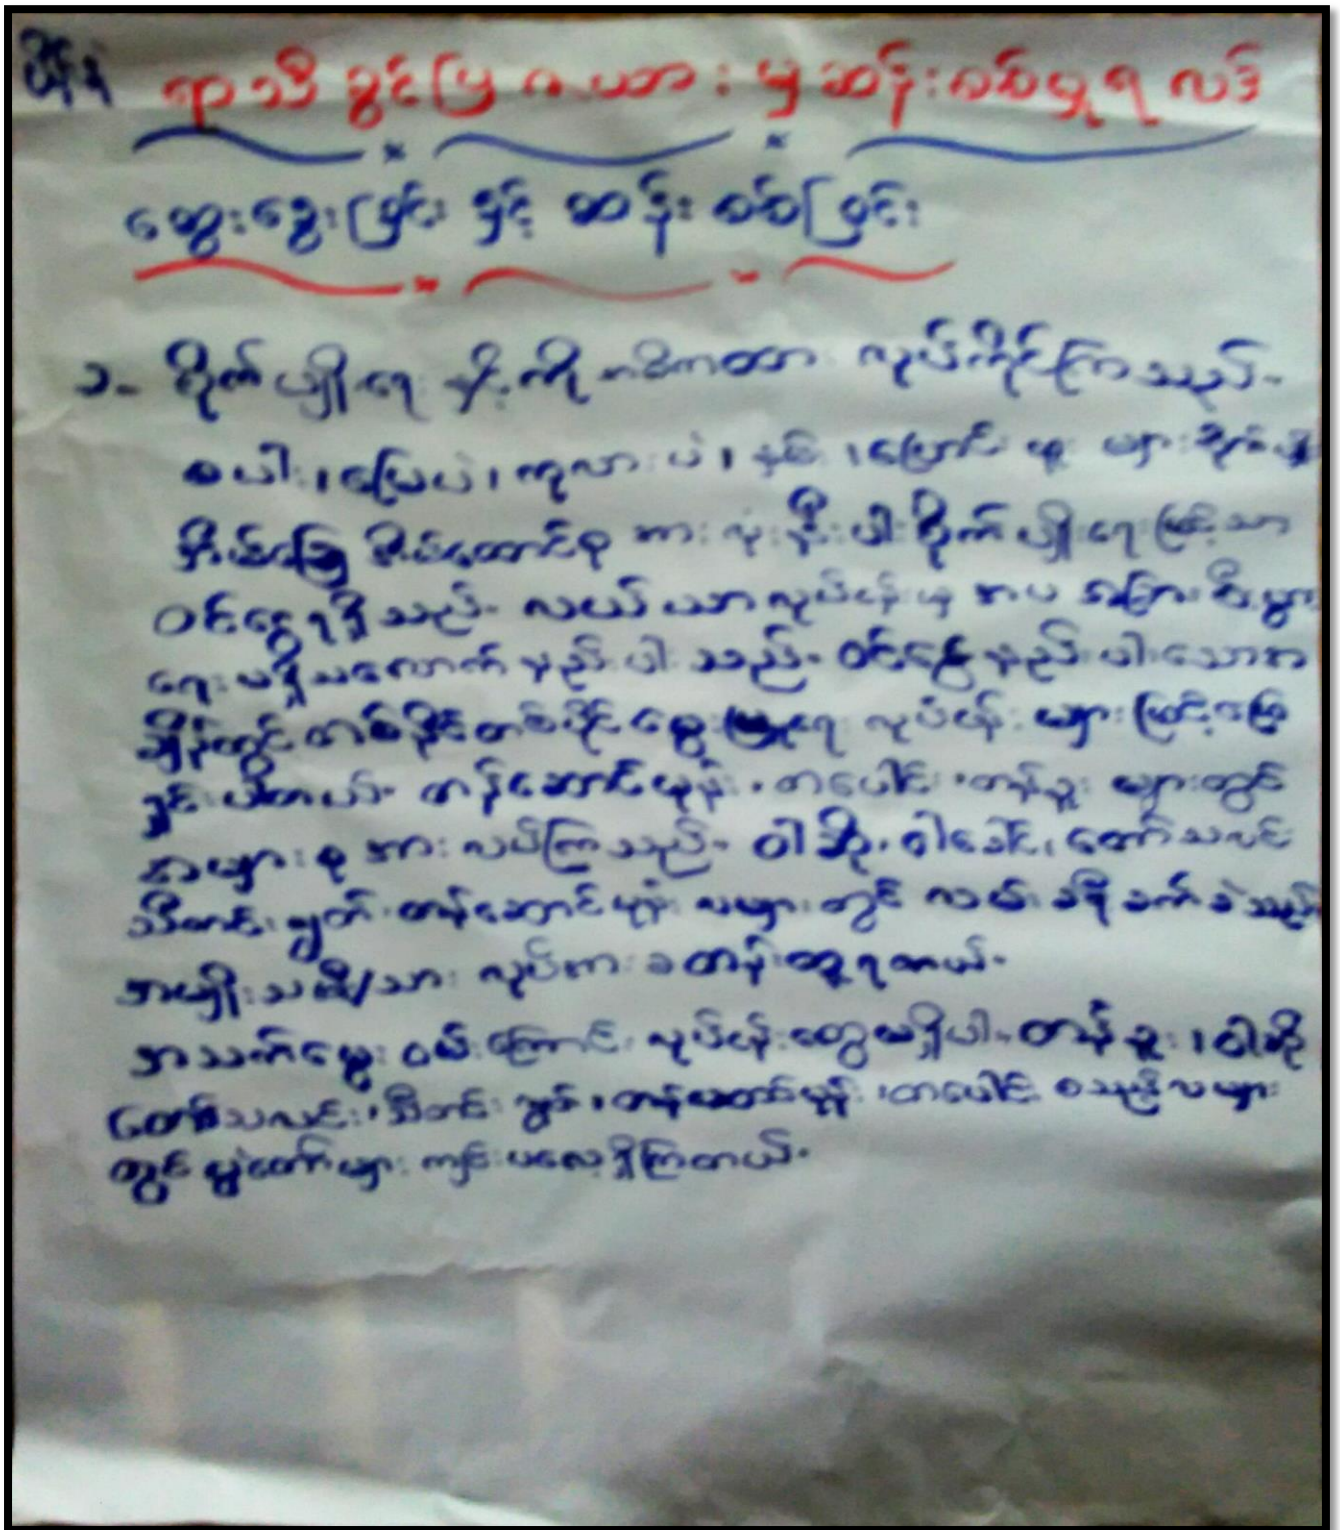 ရာသီခွင်ပြဇယားမှဆန်းစစ်မှုရလဒ်
ဆွေးနွေးခြင်း နှင့် ဆန်းစစ်ခြင်း
၁- စိုက်ပျိုးရေး နှင့်ကိုအဓိကထား လုပ်ကိုင်ကြသည်-
စပါး၊မြေပဲ၊ကုလားပဲ၊နှမ်း၊ပြောင်းဖူး များစိုက်ပျိုး
အိမ်ထောင်စု အားလုံးနီးပါးစိုက်ပျိုးရေးဖြင့်သာ
ဝင်ငွေရရှိသည်- လယ်ယာလုပ်ငန်းမှ အပ အခြားစီးပွား
ရေးမရှိသလောက်နည်းပါးသည်- ဝင်ငွေနည်းပါးသောအ
ချိန်တွင်တစ်နိုင်တစ်ပိုင်မွေးမြူရေး လုပ်ငန်းများဖြင့်ဖြေ
ရှင်းပါတယ်- တန်ဆောင်မုန်း၊တပေါင်း၊တန်ခူး များတွင်
အများစု အားလပ်ကြသည်- ဝါဆို၊ဝါခေါင်၊တော်သလင်း
သီတင်းကျွတ်၊တန်ဆောင်မုန်း လများတွင် လမ်းခရီးခက်ခဲသည်
အမျိုးသမီး/သား လုပ်အားခတန်းတူရတယ်-
အသက်မွေးဝမ်းကြောင်း လုပ်ငန်းတွေမရှိပါ- တန်ခူး၊ဝါဆို
တော်သလင်း၊သီတင်းကျွတ်၊တန်ဆောင်မုန်း၊တပေါင်း စသည့်လများ
တွင် ပွဲတော်များ ကျင်းပလေ့ရှိကြတယ်-